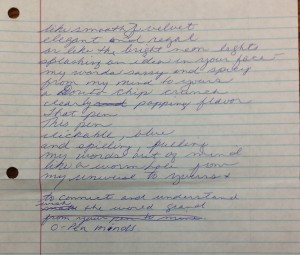 like smooth velvet
elegant and regal
or like the bright neon lights
splashing an idea in your face –
my words sassy and spicy
from my mind to yours
a Dorito chip crunch
clearly popping flavor
That pen
This pen
clickable, blue
and spilling, pulling
my words out of mind
like a wormhole from
my universe to yours
to connect and understand
the world
from your pen to mine
O-Pen minds